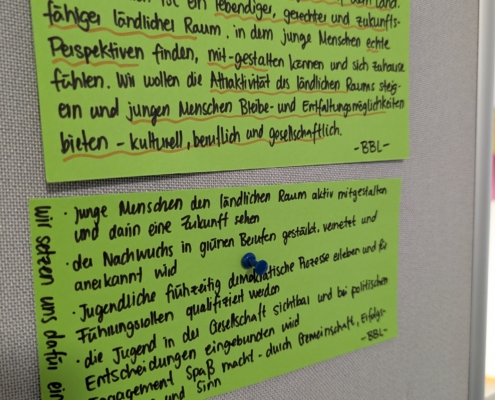 ist ein lebendiger, gerechter und zukunfts-
fähiger ländlicher Raum. in dem junge Menschen echte
Perspektiven finden, mit-gestalten können und sich zuhause
fühlen. Wir wollen die Attraktivität des ländlichen Raums steig-
ern und jungen Menschen Bleibe- und Entfaltungsmöglichkeiten
bieten - kulturell, beruflich und gesellschaftlich.
-BBL-
Wir setzen uns dafür ein
· junge Menschen den ländlichen Raum aktiv mitgestalten
und darin eine Zukunft sehen
· der Nachwuchs in grünen Berufen gestärkt, vernetzt und
anerkannt wird
· Jugendliche frühzeitig demokratische Prozesse erleben und für
Führungsrollen qualifiziert werden
· die Jugend in der Gesellschaft sichtbar und bei politischen
Entscheidungen eingebunden wird
Engagement, Spaß macht - durch Gemeinschaft, Erfolgs-
und Sinn
-BBL-